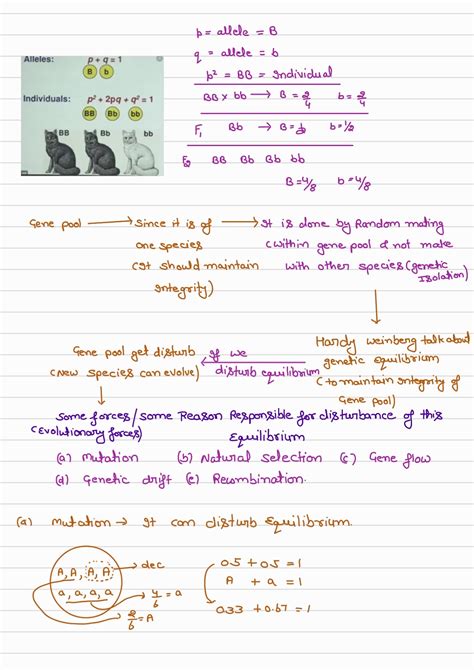 Alleles: p + q = 1
B b
Individuals: p² + 2pq + q² = 1
BB Bb bb
BB Bb bb
p = allele = B
q = allele = b
p² = BB = Individual
BB x bb → B = 2/4 b = 2/4
F₁ Bb → B = 1/2 b = 1/2
F₂ BB Bb Bb bb
B = 4/8 b = 4/8
Gene pool → Since it is of → It is done by Random mating
one species (within gene pool & not make
(It should maintain with other species (genetic
Integrity) Isolation)
Hardy weinberg talk about
Gene pool get disturb If we genetic equilibrium
(new species can evolve) disturb equilibrium (to maintain integrity of
Gene pool)
Some forces/some Reason Responsible for disturbance of this
(Evolutionary forces) Equilibrium
(a) Mutation (b) Natural selection (c) Gene flow
(d) Genetic drift (e) Recombination.
(a) Mutation → It can disturb Equilibrium.
A, A, A, A → dec 0.5 + 0.5 = 1
a, a, a, a 4/6 = a A + a = 1
2/6 = A 0.33 + 0.67 = 1